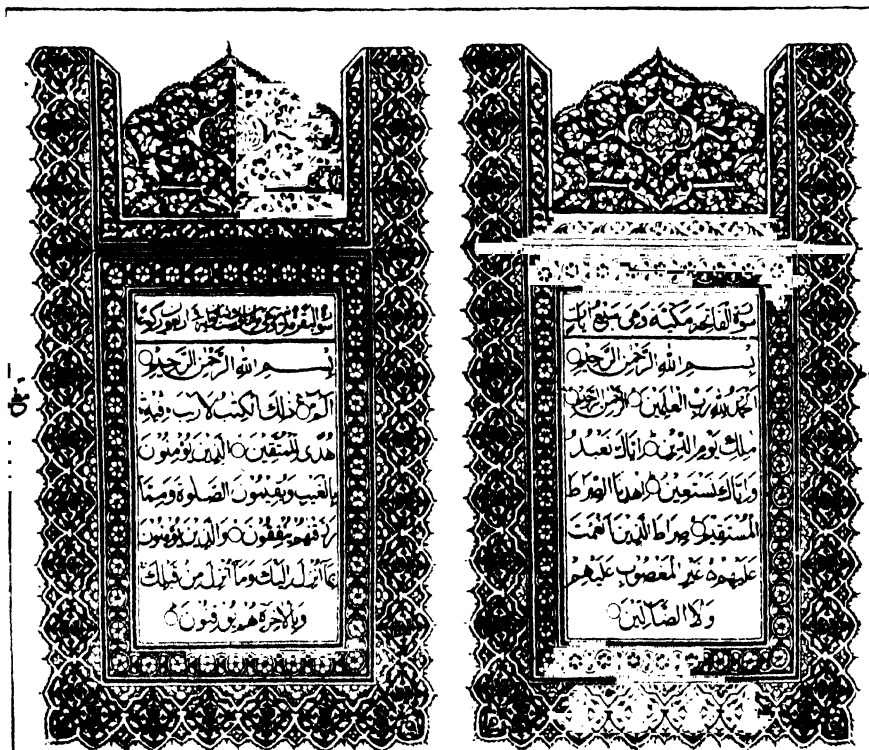 سورة الفاتحة مكية وهى سبع ايات
بسم الله الرحمن الرحيم
الحمد لله رب العلمين الرحمن الرحيم
ملك يوم الدين اياك نعبد
واياك نستعين اهدنا الصراط
المستقيم صراط الذين انعمت
عليهم غير المغضوب عليهم
ولا الضالين
سورة البقرة
بسم الله الرحمن الرحيم
الم ذلك الكتب لا ريب فيه
هدى للمتقين الذين يؤمنون
بالغيب ويقيمون الصلوة ومما
رزقنهم ينفقون والذين يؤمنون
بما انزل اليك وما انزل من قبلك
وبالاخرة هم يوقنون